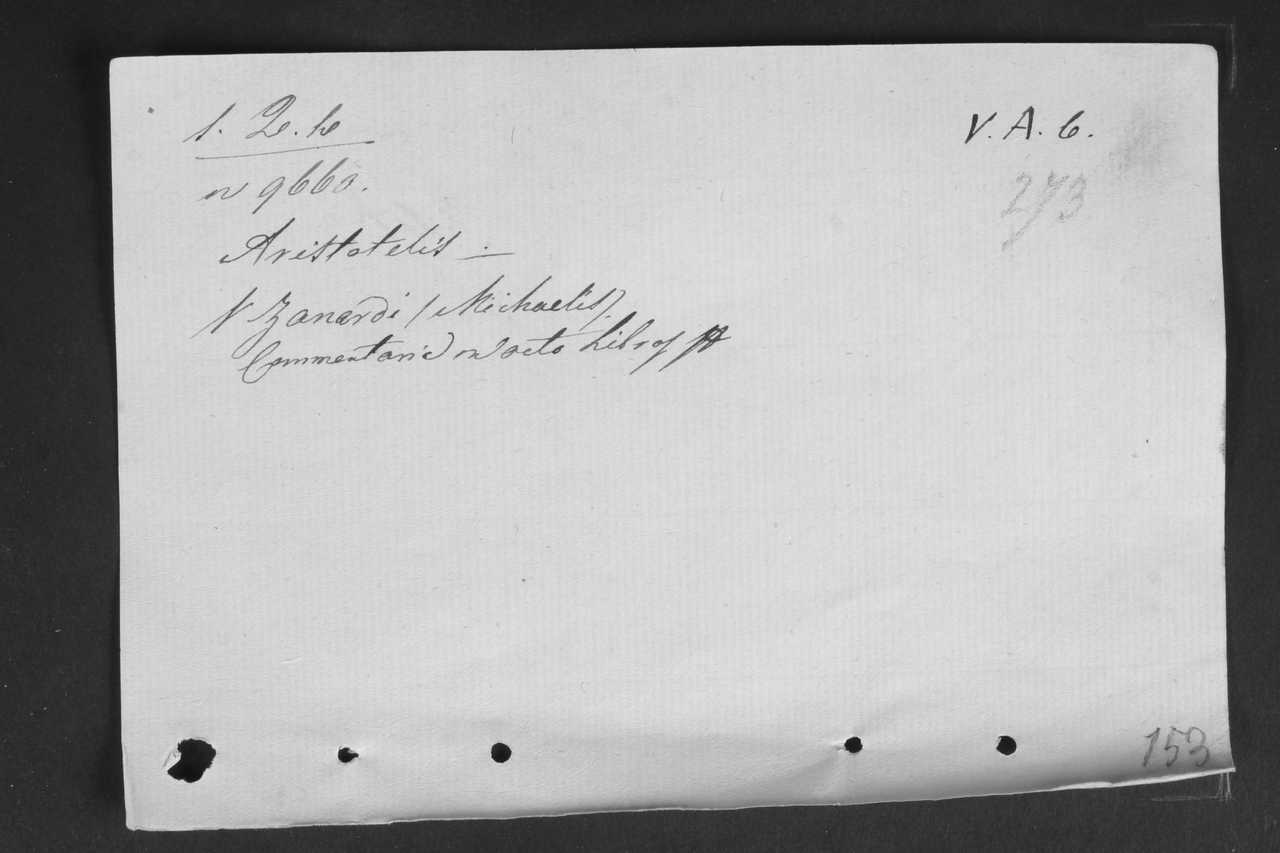 V. A. 6.
273
n 9660.
Aristotelis —
V Zanardi (Michaelis).
Commentaria in octo Libros
153